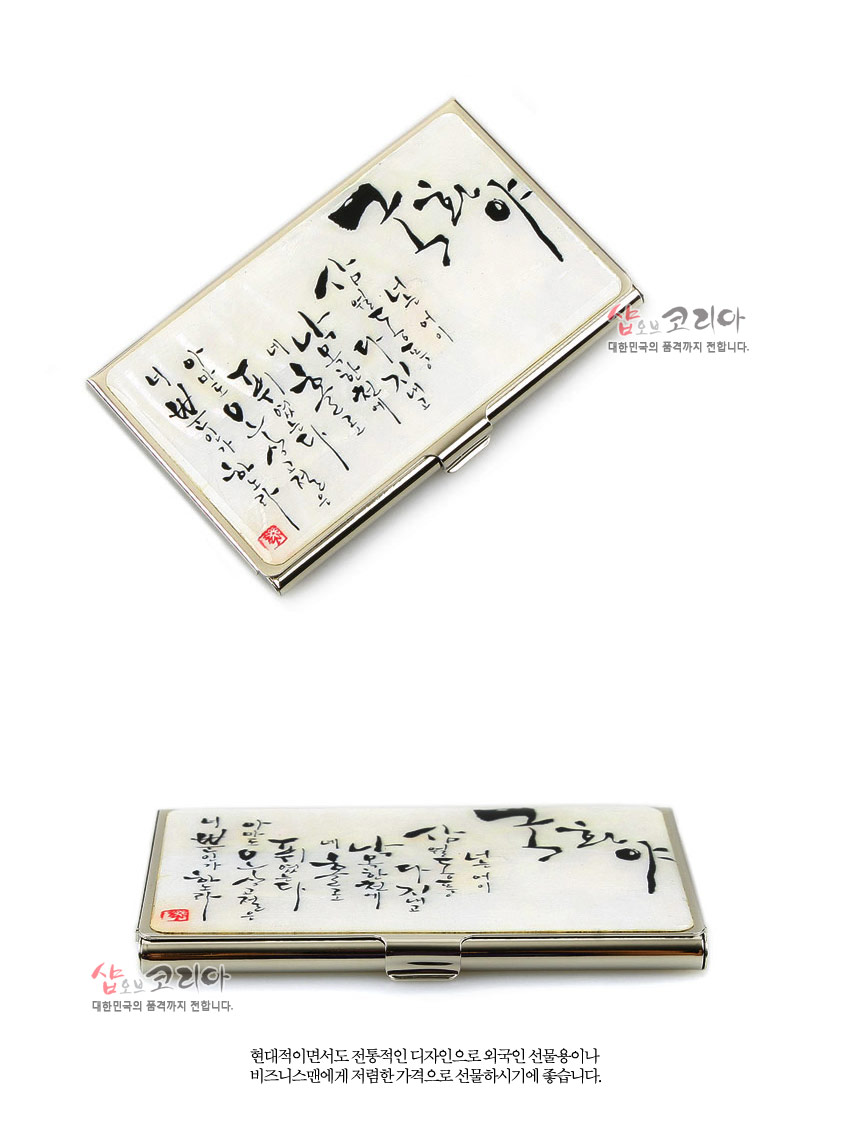 국화야
너는 어이
삼월동풍
다 지내고
낙목한천에
네 홀로
피었는다
아마도
오상고절은
너 뿐인가
하노라
샵오브코리아
대한민국의 품격까지 전합니다.
국화야
너는 어이
삼월동풍
다 지내고
낙목한천에
네 홀로
피었는다
아마도
오상고절은
너 뿐인가
하노라
샵오브코리아
대한민국의 품격까지 전합니다.
현대적이면서도 전통적인 디자인으로 외국인 선물용이나
비즈니스맨에게 저렴한 가격으로 선물하시기에 좋습니다.